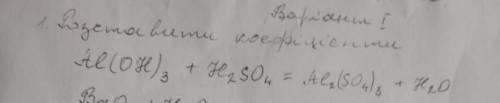 Варіант I
1. Розставити коефіцієнти
Al(OH)₃ + H₂SO₄ = Al₂(SO₄)₃ + H₂O